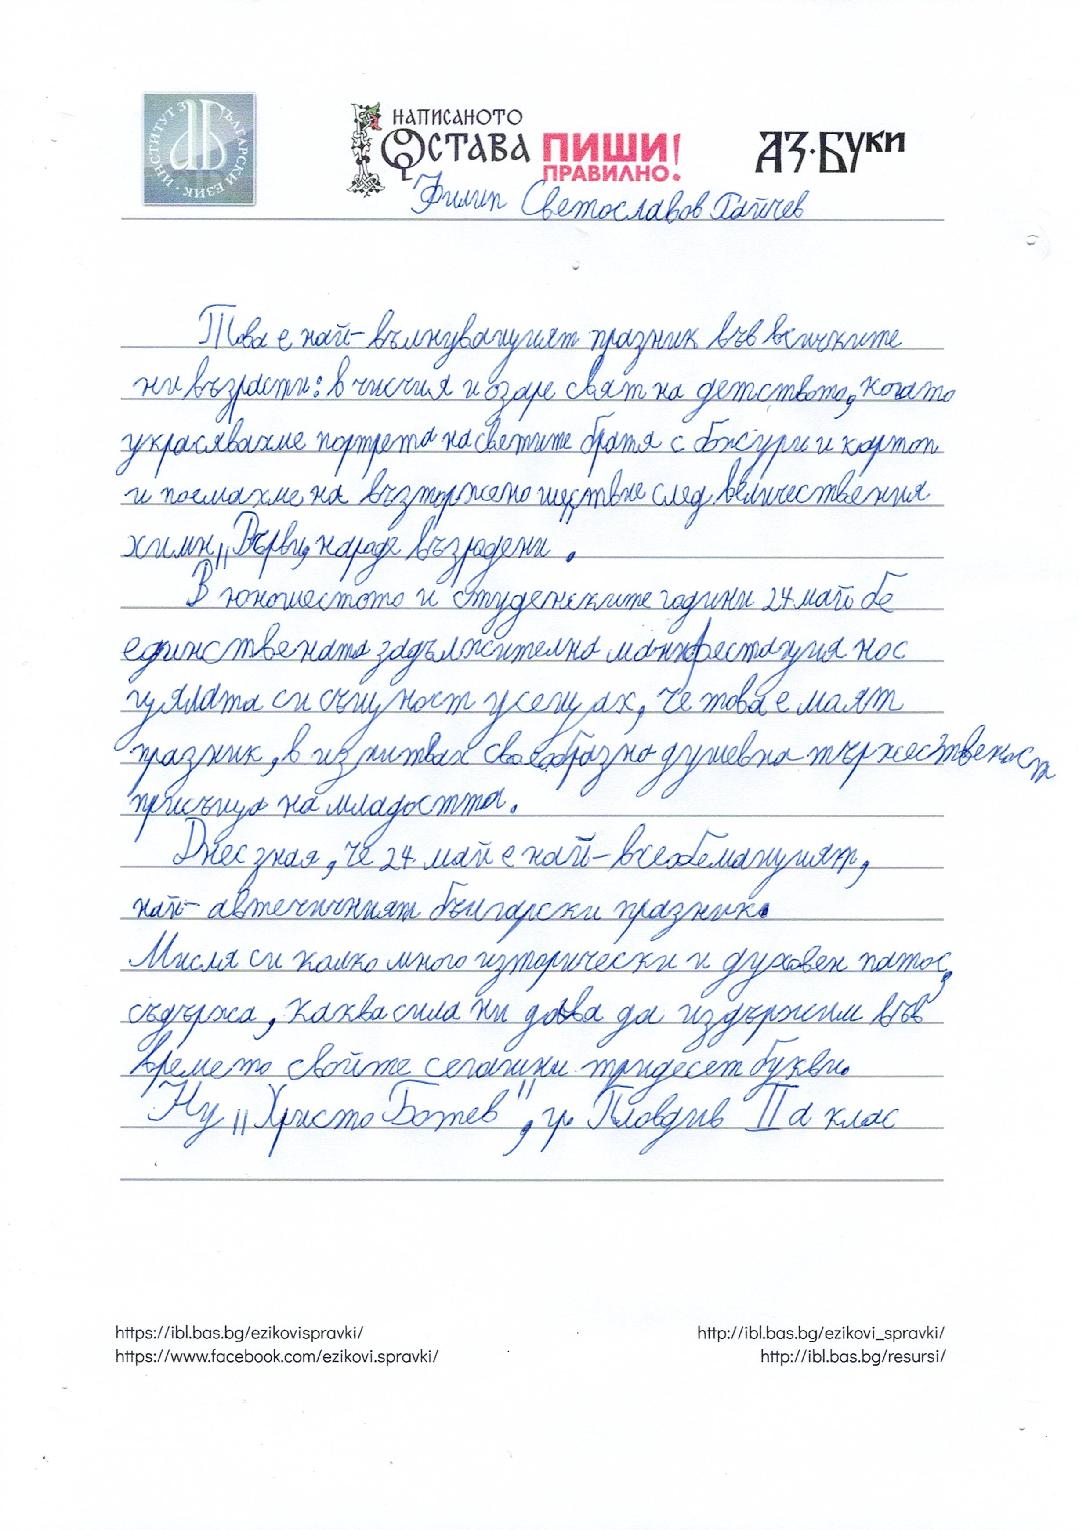 ИНСТИТУТ ЗА БЪЛГАРСКИ ЕЗИК
НАПИСАНОТО
ОСТАВА ПИШИ!
ПРАВИЛНО.
АЗ·БУКИ
Филип Светославов Пайчев
Това е най-вълнуващият празник във всичките
ни възрасти: в чисчия и озаре свят на детството, когато
украсявахме портрета на светите братя с божури и картон
и поемахме на възторжено шествие след величествения
химн „Върви, народе възродени .
В юношестото и студенските години 24 май бе
единствената задължителна манифестация нос
цялата си същност усещах, че това е маят
празник, в изпитвах своеобразно душевна тържественост
присъща на младостта.
Днес зная, че 24 май е най-всеобемащият,
най- автечичният български празник.
Мисля си колко много изторически и духовен патос
съдържа, каква сила ни дава да издържим във
времето свойте сегашни тридесет букви.
Ну „Христо Ботев", гр. Пловдив II а клас
https://ibl.bas.bg/ezikovispravki/
http://ibl.bas.bg/ezikovi_spravki/
https://www.facebook.com/ezikovi.spravki/
http://ibl.bas.bg/resursi/